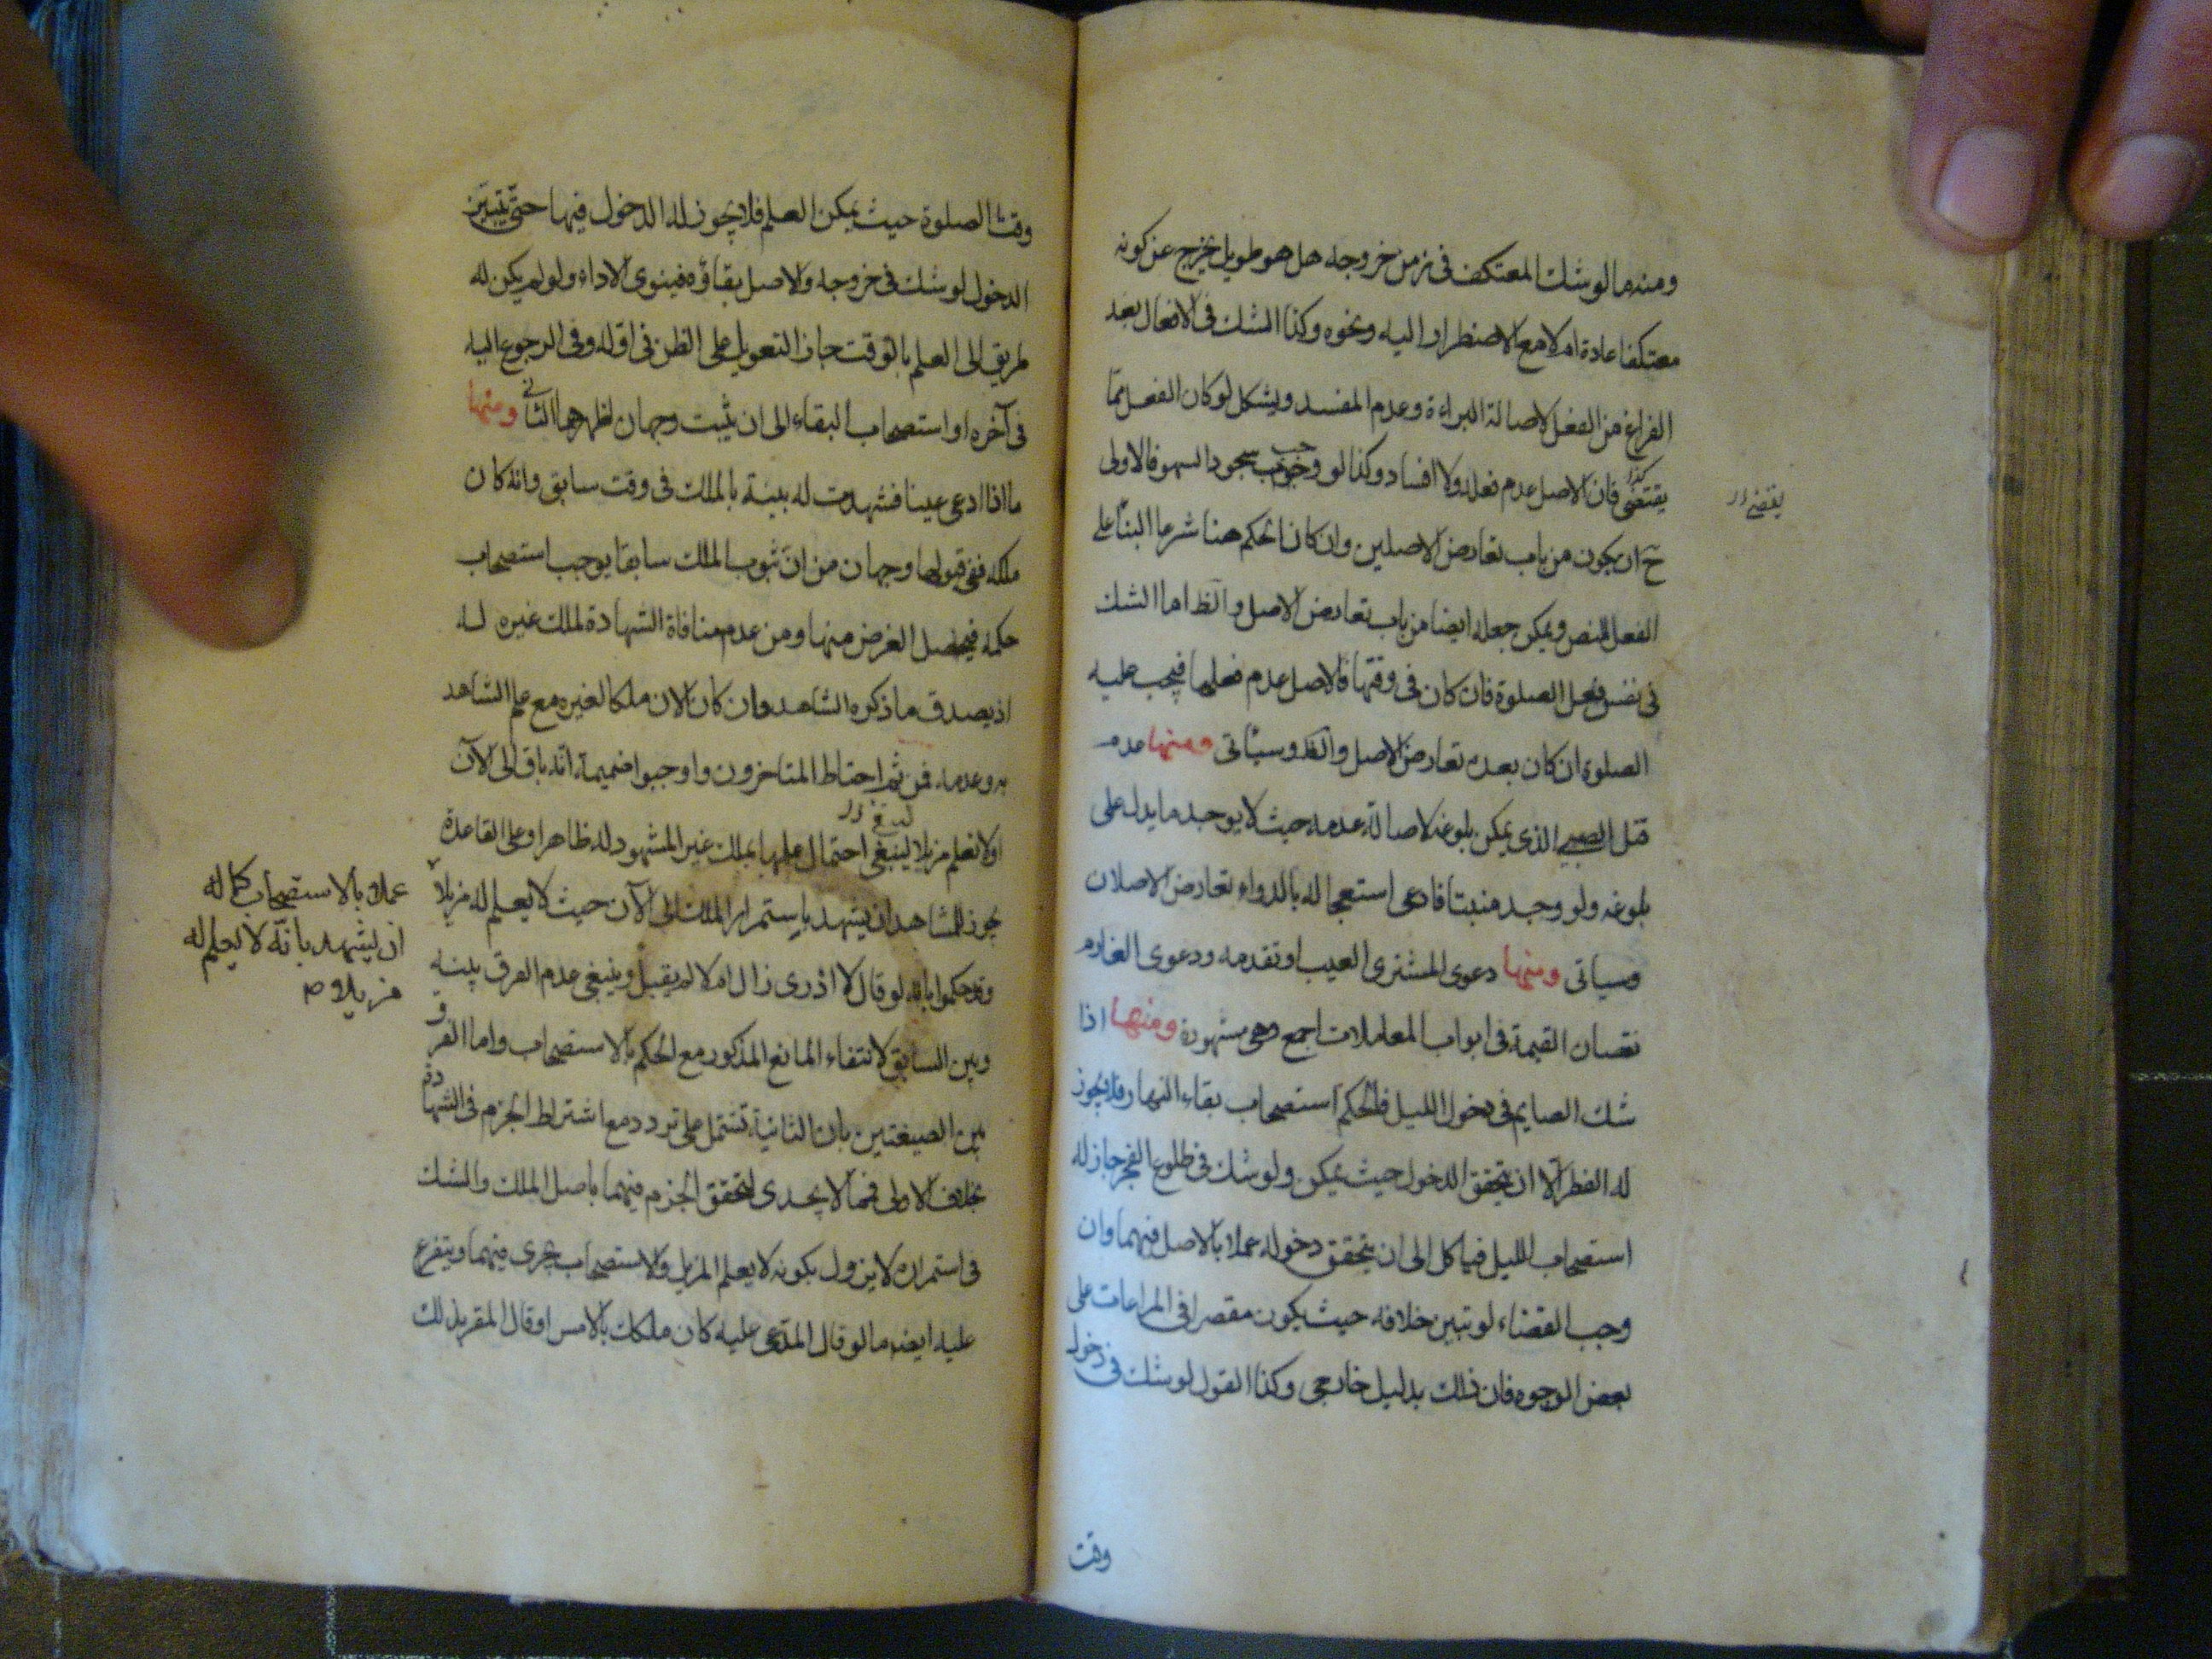 ومنه ما لو شك المعتكف فى زمن خروجه هل هو طويل يخرج عن كونه
معتكفا عادة ام لا مع الاضطرار اليه ونحوه وكذا الشك فى الافعال بعد
الفراغ من الفعل لاصالة البراءة وعدم المفسد ويشكل لو كان الفعل مما
يقتضى فان الاصل عدم فعله ولا افساد وكذا لو وجب سجود السهو فالاولى
ح ان يكون من باب تعارض الاصلين وان كان الحكم هنا شرعا البناء على
الفعل للنص ويمكن جعله ايضا من باب تعارض الاصل والظ اما الشك
فى نفس فعل الصلوة فان كان فى وقتها فالاصل عدم فعلها فيجب عليه
الصلوة ان كان بعده تعارض الاصل والظ وسيأتى ومنها عدم
قتل الصبى الذى يمكن بلوغه لاصالة عدمه حيث لا يوجد ما يدل على
بلوغه ولو وجد منبتا فادعى استعجاله بالدواء تعارض الاصلان
وسياتى ومنها دعوى المشترى العيب او تقدمه ودعوى الغارم
نقصان القيمة فى ابواب المعاملات اجمع وهى مشهورة ومنها اذا
شك الصايم فى دخول الليل فالحكم استصحاب بقاء النهار فلا يجوز
له الفطر الا ان يتحقق الدخول حيث يمكن ولو شك فى طلوع الفجر جاز له
استصحاب الليل فياكل الى ان يتحقق دخوله عملا بالاصل فيهما وان
وجب القضاء لو تبين خلافه حيث يكون مقصرا فى المراعات على
بعض الوجوه فان ذلك بدليل خارجى وكذا القول لو شك فى دخول
وقت
وقت الصلوة حيث يمكن العلم فلا يجوز له الدخول فيها حتى يتبين
الدخول لو شك فى خروجه والاصل بقاؤه فينوى الاداء ولو لم يكن له
طريق الى العلم بالوقت جاز التعويل على الظن فى اوله وفى الرجوع اليه
فى آخره او استصحاب البقاء الى ان يثبت وجهان اظهرهما الثانى ومنها
ما اذا ادعى عينا فشهدت له بينة بالملك فى وقت سابق وانه كان
ملكه ففى قبولها وجهان من ان ثبوت الملك سابقا يوجب استصحاب
حكمه فيحصل الغرض منها ومن عدم منافاة الشهادة لملك غيره له
اذ يصدق ما ذكره الشاهد وان كان الان ملكا لغيره مع علم الشاهد
به وعدمه فمن ثم احتاط المتاخرون واوجبوا ضميمة انه باق الى الآن
او لا نعلم مزيلا لينبغى احتمال علمها بملك غير المشهود له ظاهرا وعلى القاعدة
يجوز للشاهد ان يشهد باستمرار الملك الى الآن حيث لا يعلم له مزيلا
عملا بالاستصحاب كما له
ان يشهد بانه لا يعلم له
مزيلا ص
وقد حكموا بانه لو قال لا ادرى زال ام لا لم يقبل وينبغى عدم الفرق بينه
وبين السابق لانتفاء المانع المذكور مع الحكم بالاستصحاب واما الفرق
بين الصيغتين بان الثانية تشتمل على تردد مع اشتراط الجزم فى الشهادة
بخلاف الاولى فمما لا يجدى لتحقق الجزم فيهما باصل الملك والشك
فى استمراره لا يزول بكونه لا يعلم المزيل والاستصحاب يجرى فيهما ويتفرع
عليه ايضا ما لو قال المدعى عليه كان ملكك بالامس او قال المقر بذلك